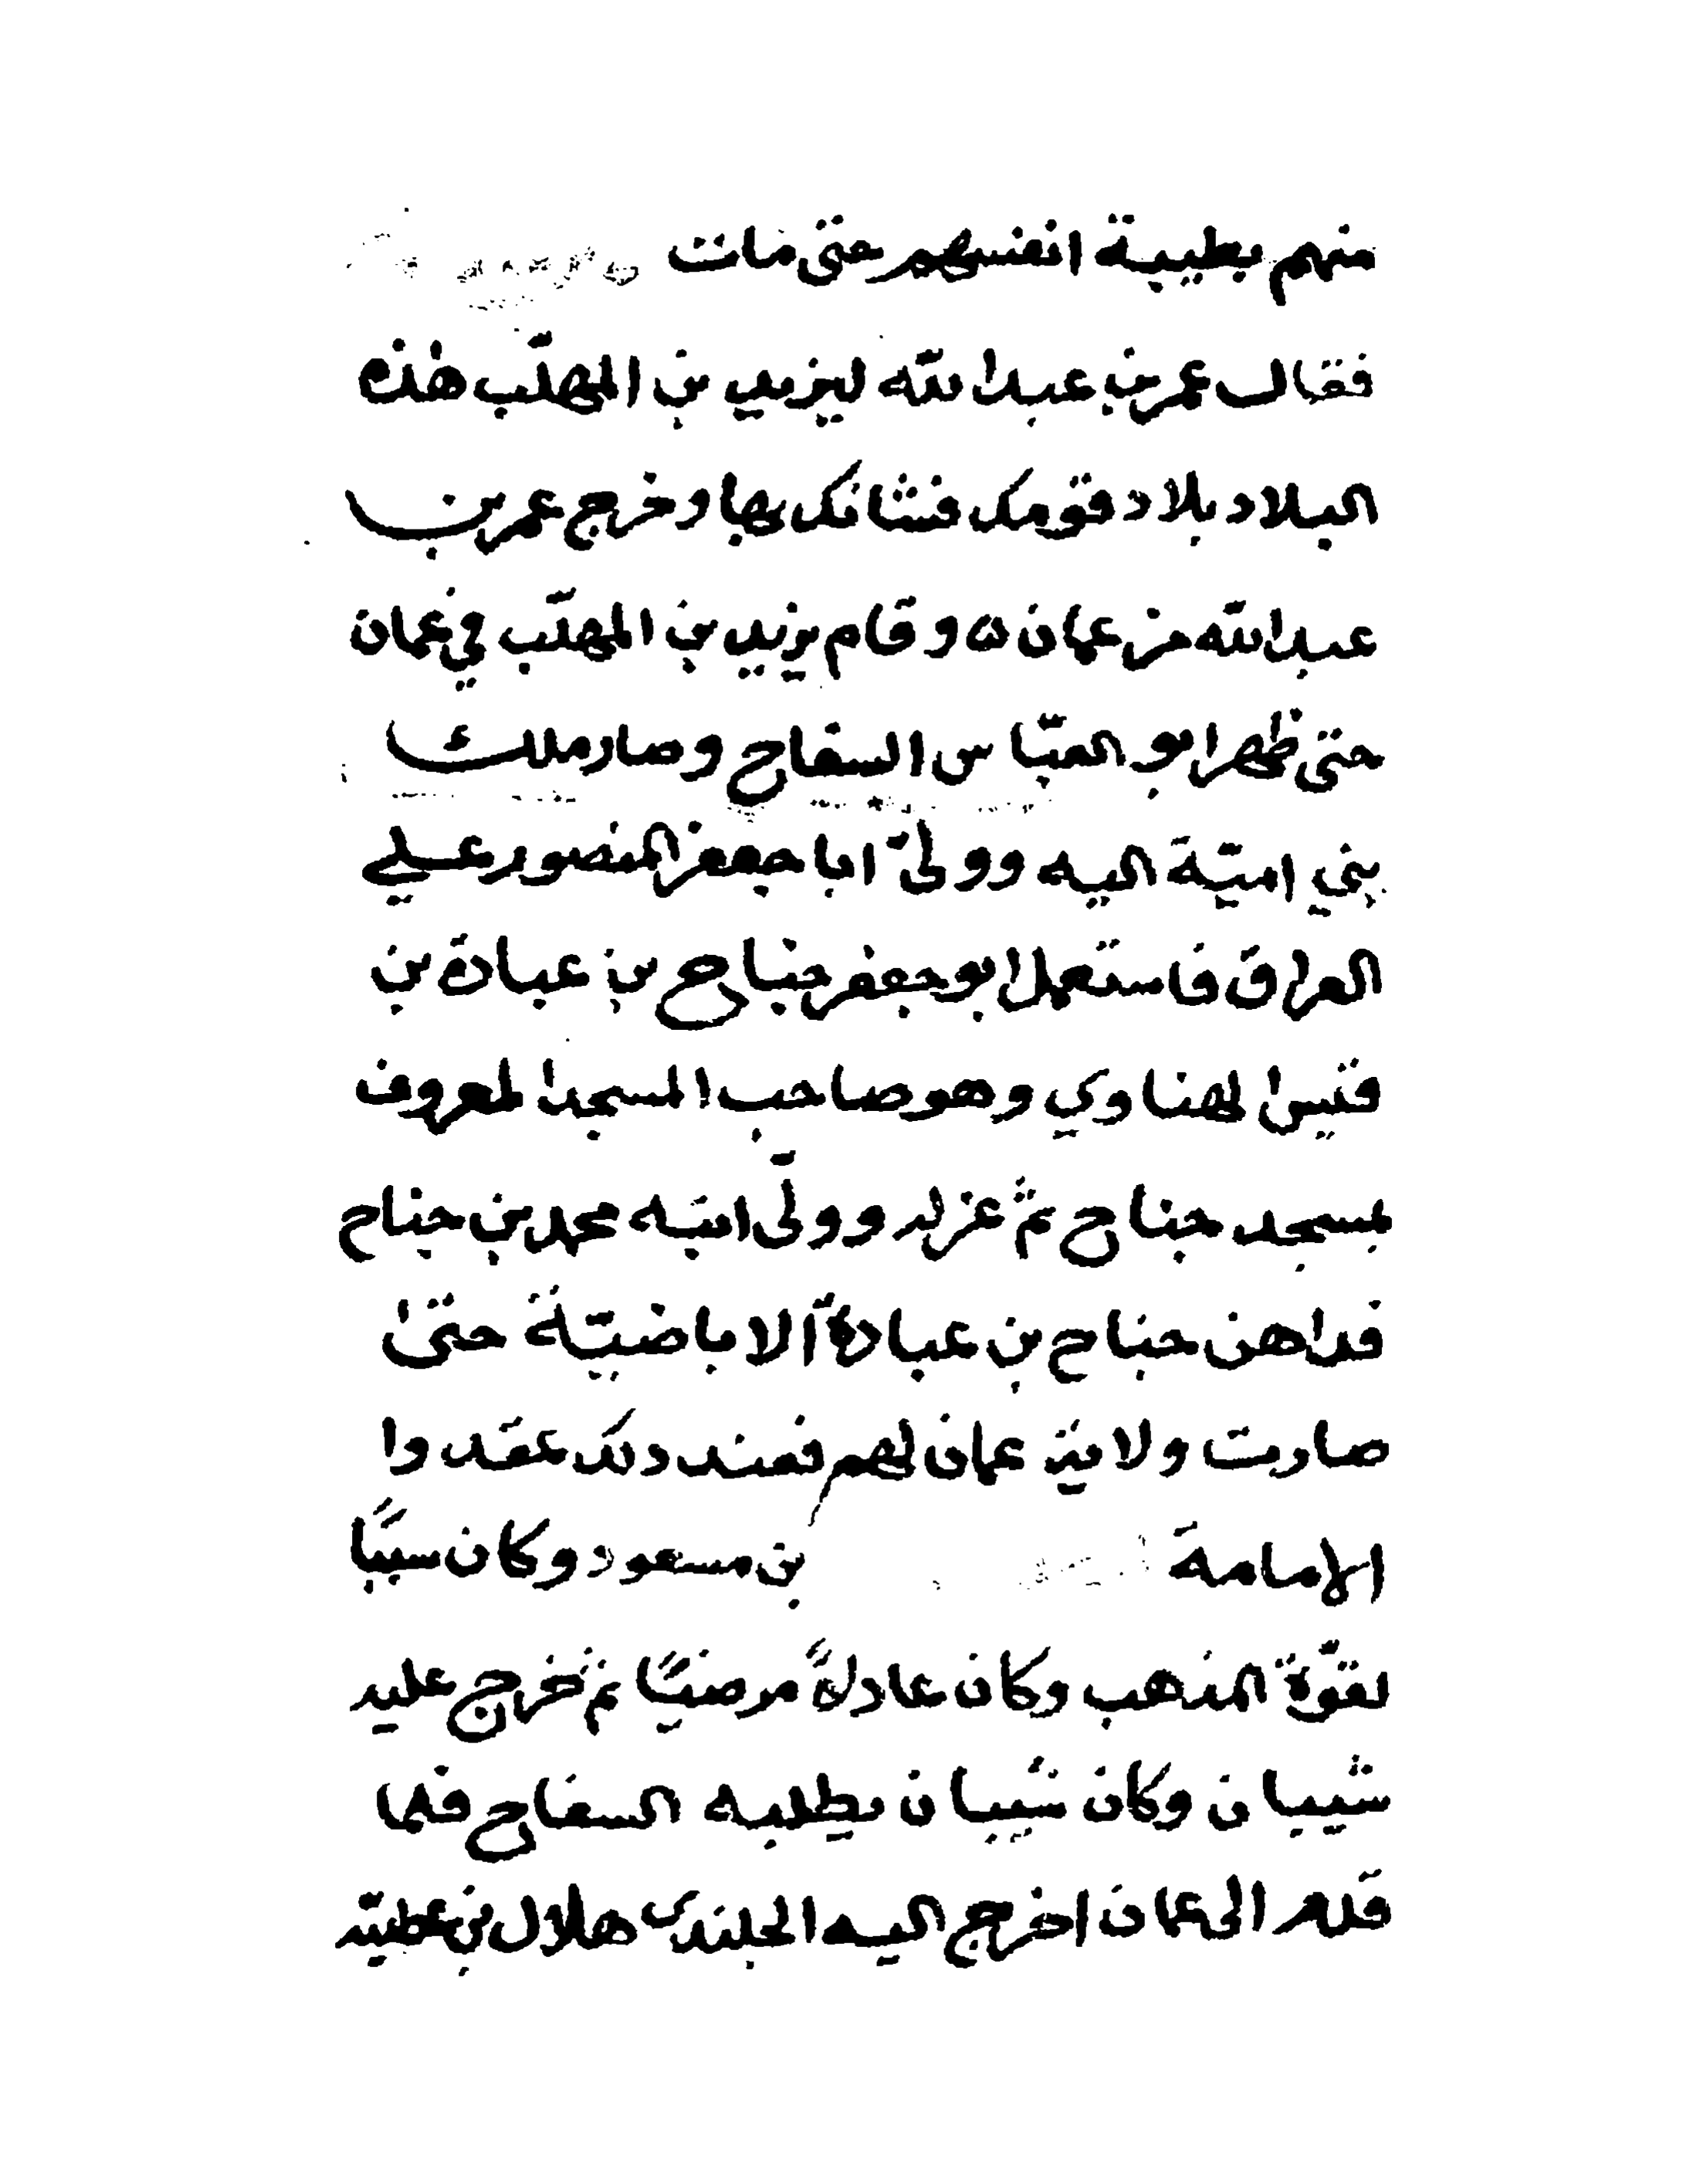 منهم بطيبة انفسهم حتى مات
فقال عمر بن عبد الله ليزيد بن المهلّب هذه
البلاد بلاد قومك فشانك بها وخرج عمر بن
عبد الله من عمان ه وقام يزيد بن المهلّب في عمان
حتى ظهر ابو العبّاس السفاح وصار ملك
بني اميّة اليه وولىّ ابا جعفر المنصور علي
العراق فاستعمل ابو جعفر جناح بن عبادة بن
قيس الهناوي وهو صاحب المسجد المعروف
بمسجد جناح ثمّ عزله وولّى ابنه محمد بن جناح
فداهن جناح بن عبادة الاباضيّة حتىٰ
صارت ولاية عمان لهم فعند ذلك عقدوا
الإمامة بن مسعود وكان سببًا
لقوّة المذهب وكان عادلاً مرضيًا ثمّ خرج عليه
شيبان وكان شيبان يطلبه السفاح فلما
قدم الى عمان اخرج اليه الجلندى هلال بن عطية